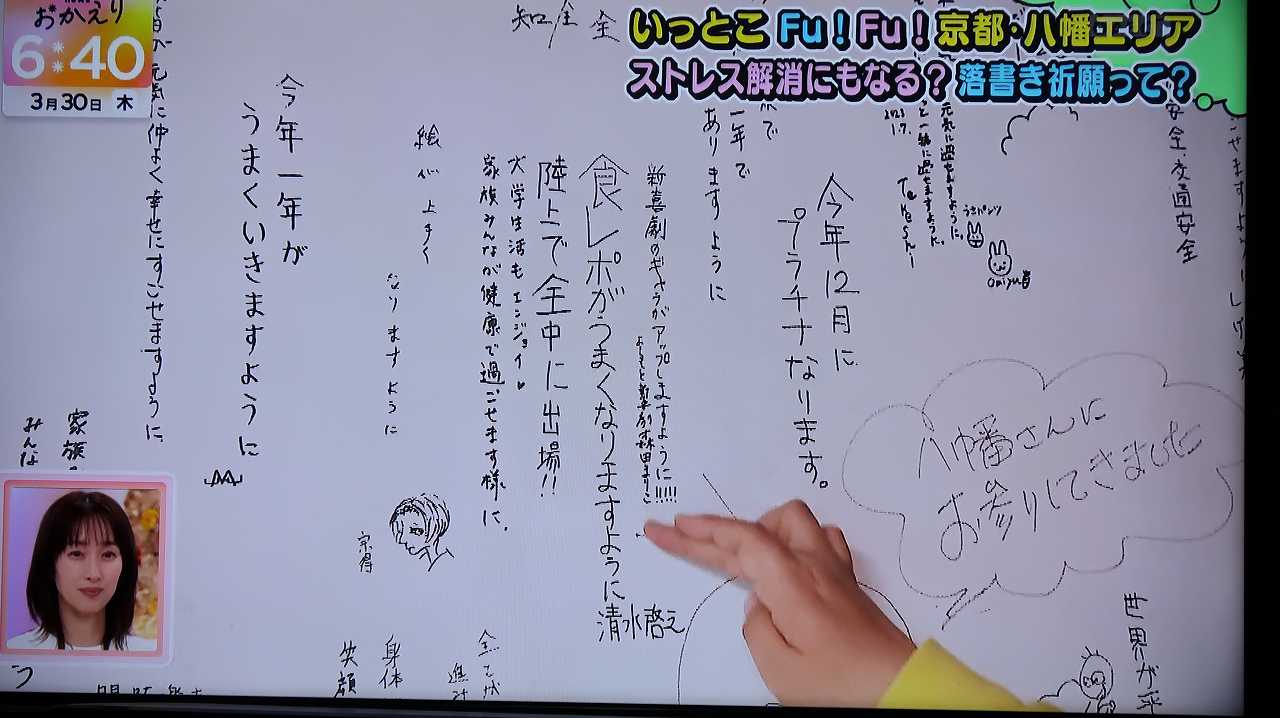 おかえり
6:40
3月30日 木
いっとこ Fu!Fu!京都・八幡エリア
ストレス解消にもなる?落書き祈願って?
安全・交通安全
元気に過ごせますように。
と一緒に過せますように。
Takeshi
2023
1.7.
うさパンツ
八幡さんに
お参りしてきました
世界が平
今年12月に
プラチナなります。
一年で
ありますように
新喜劇のギャラがアップしますように!!!!!
よしもと新喜劇 森田まりこ
食レポがうまくなりますように
清水啓え
陸上で全中に出場!!
大学生活もエンジョイ
家族みんなが健康で過ごせます様に。
絵が上手く
なりますように
宗得
全てが
身体
笑顔
今年一年が
うまくいきますように
元気に仲よく幸せにすごせますように
家族
みんな